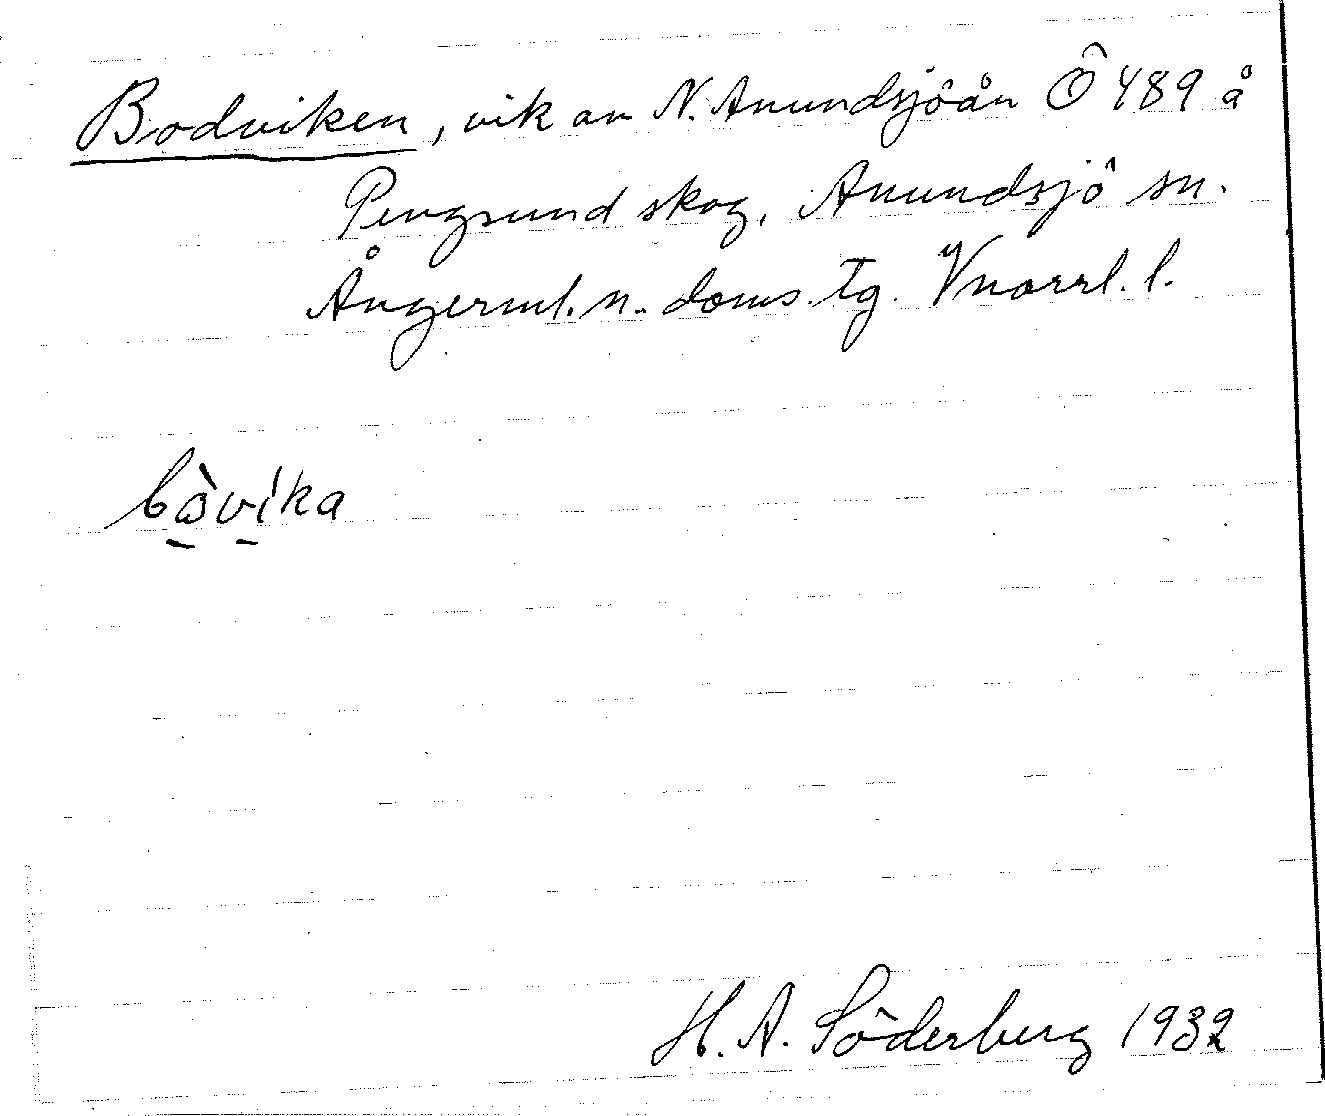 Bodviken, vik av N. Anundsjöån Ö 489 å
Pengsund skog, Anundsjö sn.
Ångerml. n. doms. tg. Vnorrl. l.
bòvíka
H. A. Söderberg 1932